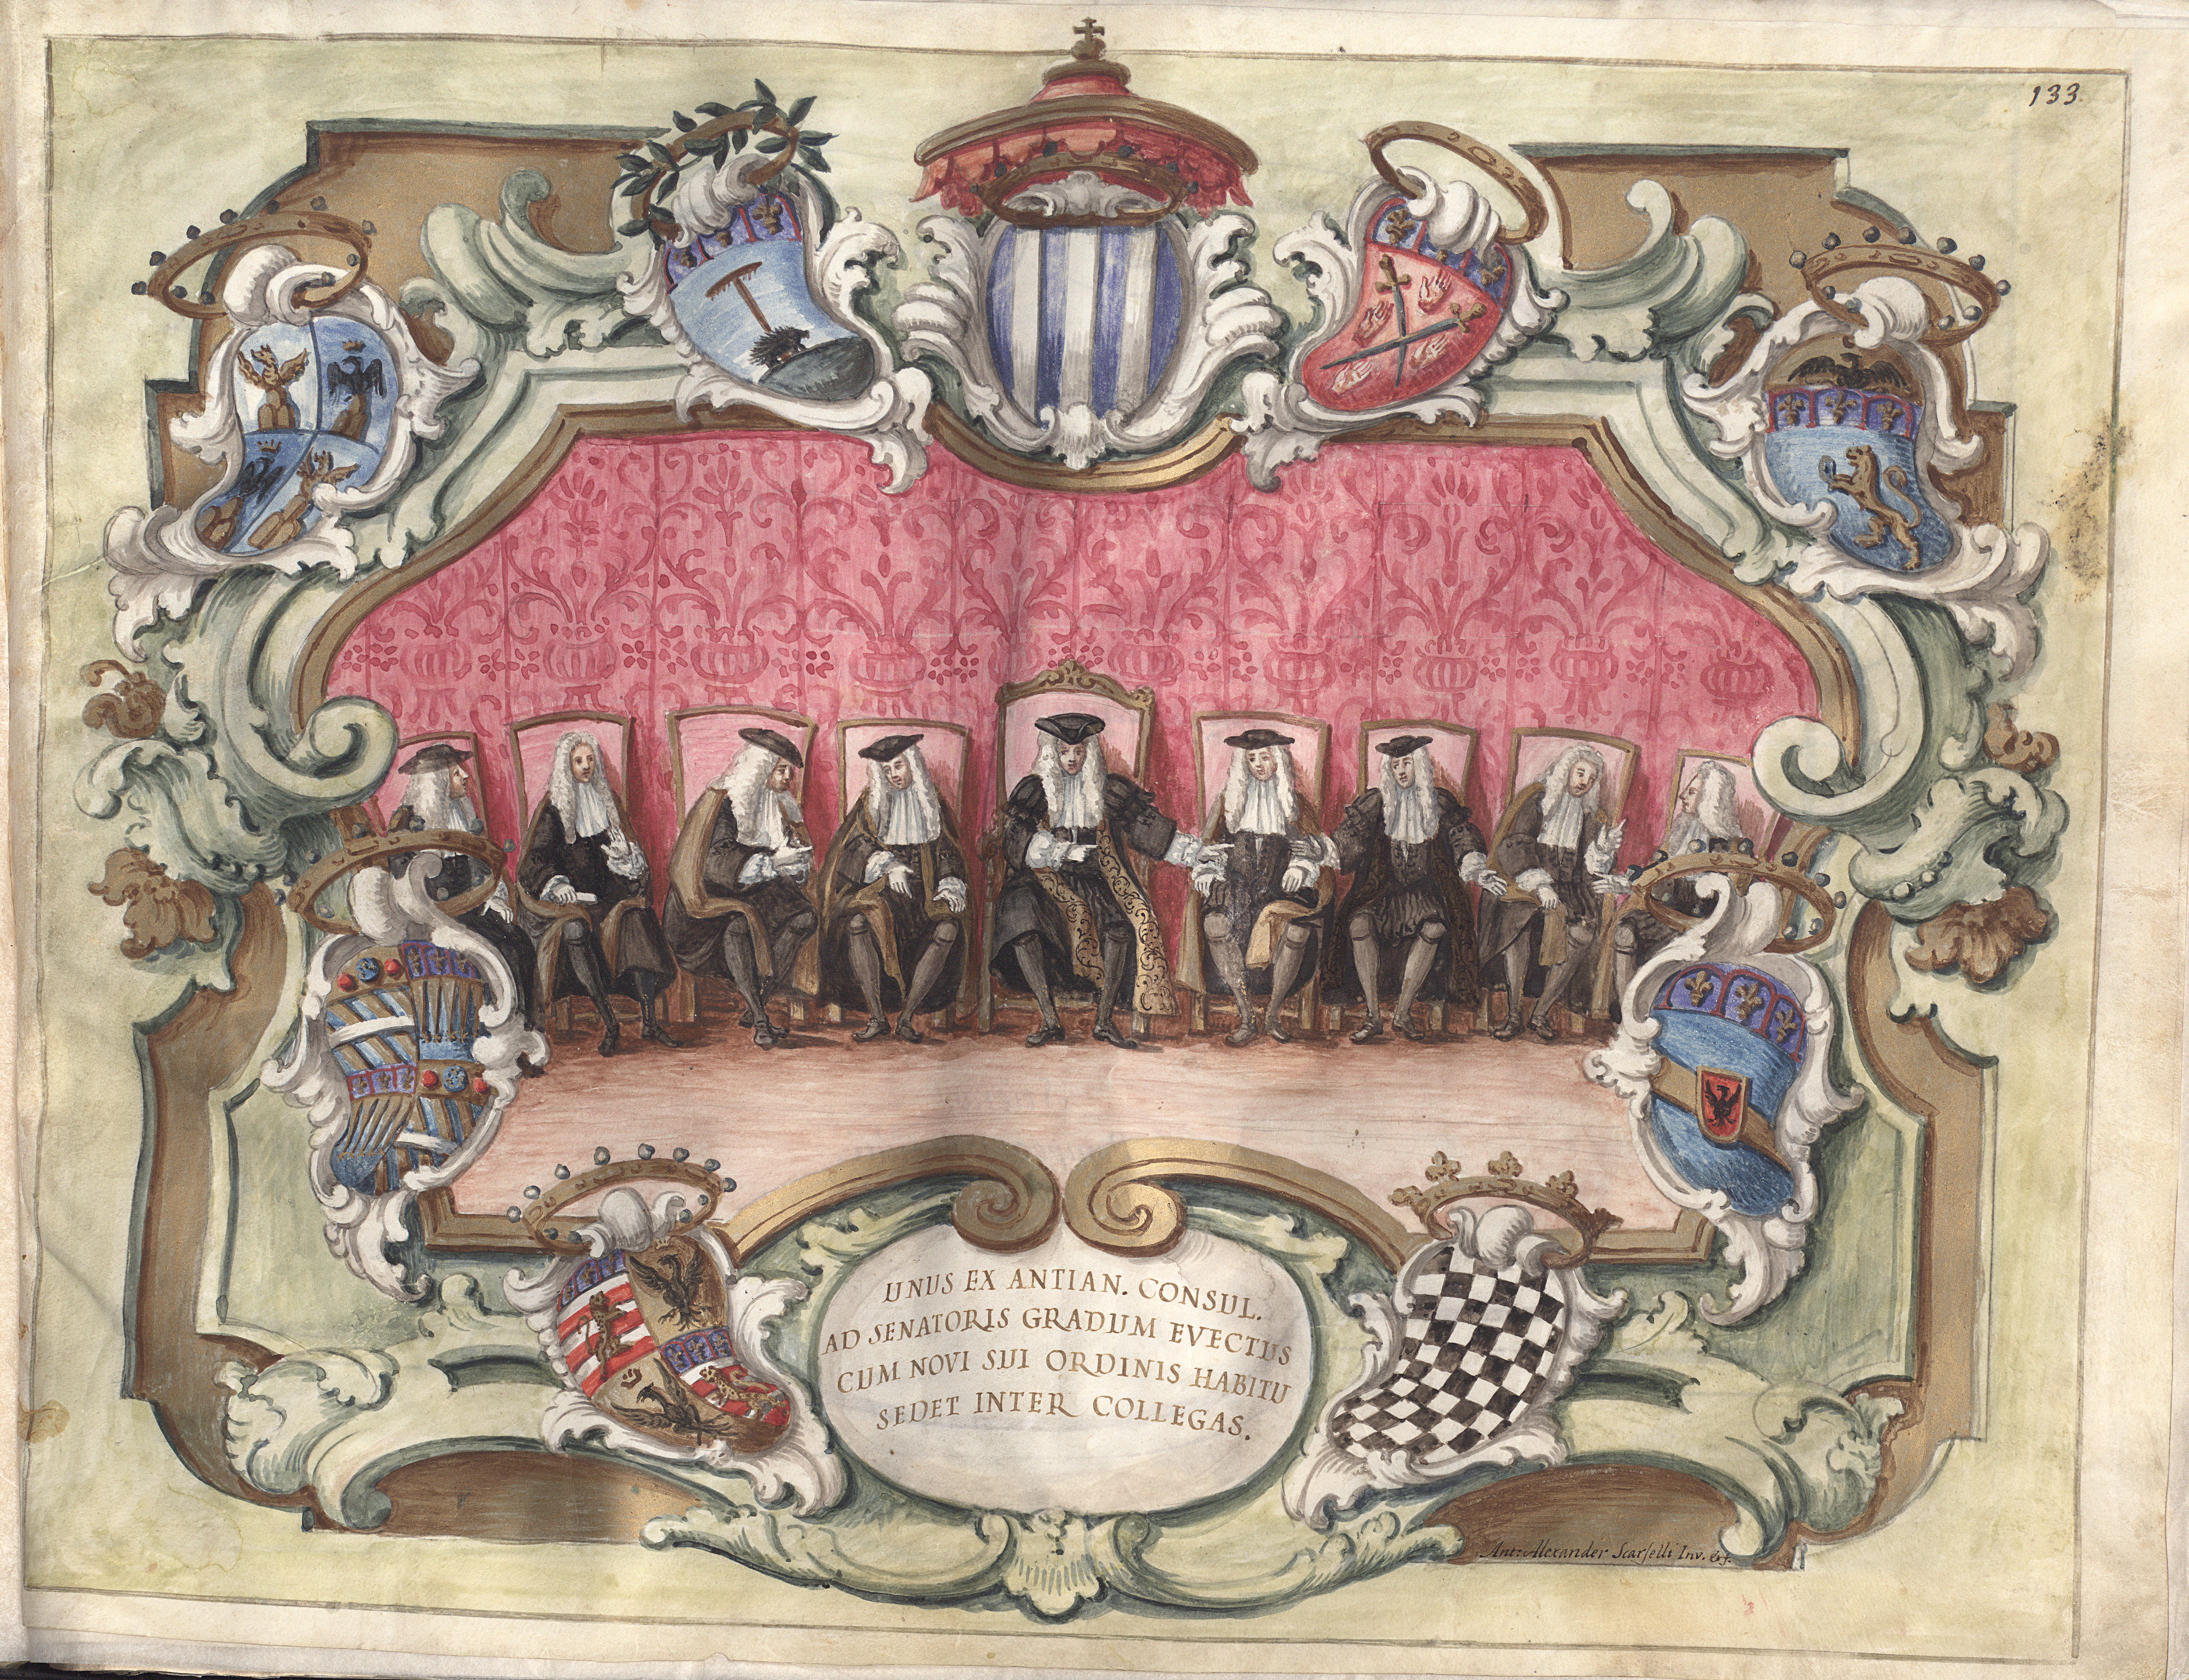 133.
UNUS EX ANTIAN. CONSUL.
AD SENATORIS GRADUM EVECTUS
CUM NOVI SUI ORDINIS HABITU
SEDET INTER COLLEGAS.
Ant: Alexander Scarselli Inv. &f.